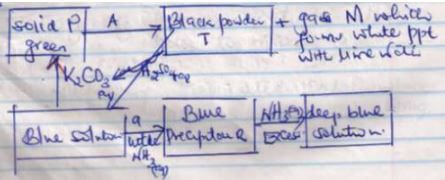 solid P
green
A
Black powder
T
+ gas M which
forms white ppt
with lime water
K2CO3
aq
H2SO4
aq
Blue solution
a
little
NH3
aq
Blue
Precipitate Q
NH3 aq
Excess
deep blue
solution.